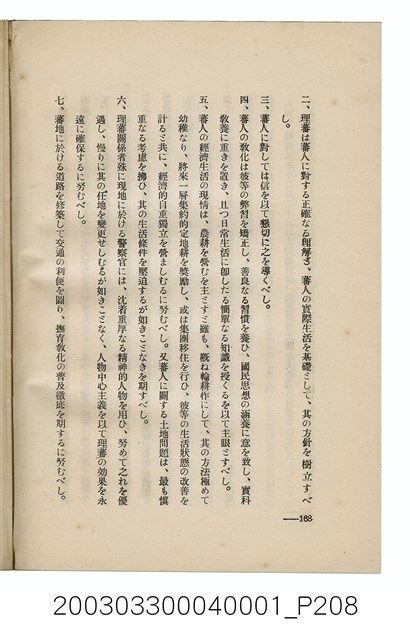 二、理蕃は蕃人に對する正確なる理解と、蕃人の實際生活を基礎として、其の方針を樹立すべ
し。
三、蕃人に對しては信を以て懇切に之を導くべし。
四、蕃人の敎化は彼等の弊習を矯正し、善良なる習慣を養ひ、國民思想の涵養に意を致し、實科
敎養に重きを置き、且つ日常生活に卽したる簡單なる知識を授くるを以て主眼とすべし。
五、蕃人の經濟生活の現情は、農耕を營むを主とすと雖も、槪ね輪耕作にして、其の方法極めて
幼稚なり、將來一層集約的定地耕を奬勵し、或は集團移住を行ひ、彼等の生活狀態の改善を
計ると共に、經濟的自重獨立を營ましむるに努むべし。又蕃人に關する土地問題は、最も愼
重なる考慮を拂ひ、其の生活條件を壓迫するが如きことなきを期すべし。
六、理蕃關係者殊に現地に於ける警察官には、沈着重厚なる精神的人物を用ひ、努めて之れを優
遇し、慢りに其の任地を變更せしむるが如きことなく、人物中心主義を以て理蕃の効果を永
遠に確保するに努むべし。
七、蕃地に於ける道路を修築して交通の利便を圖り、撫育敎化の普及徹底を期するに努むべし。
—168
200303300040001_P208